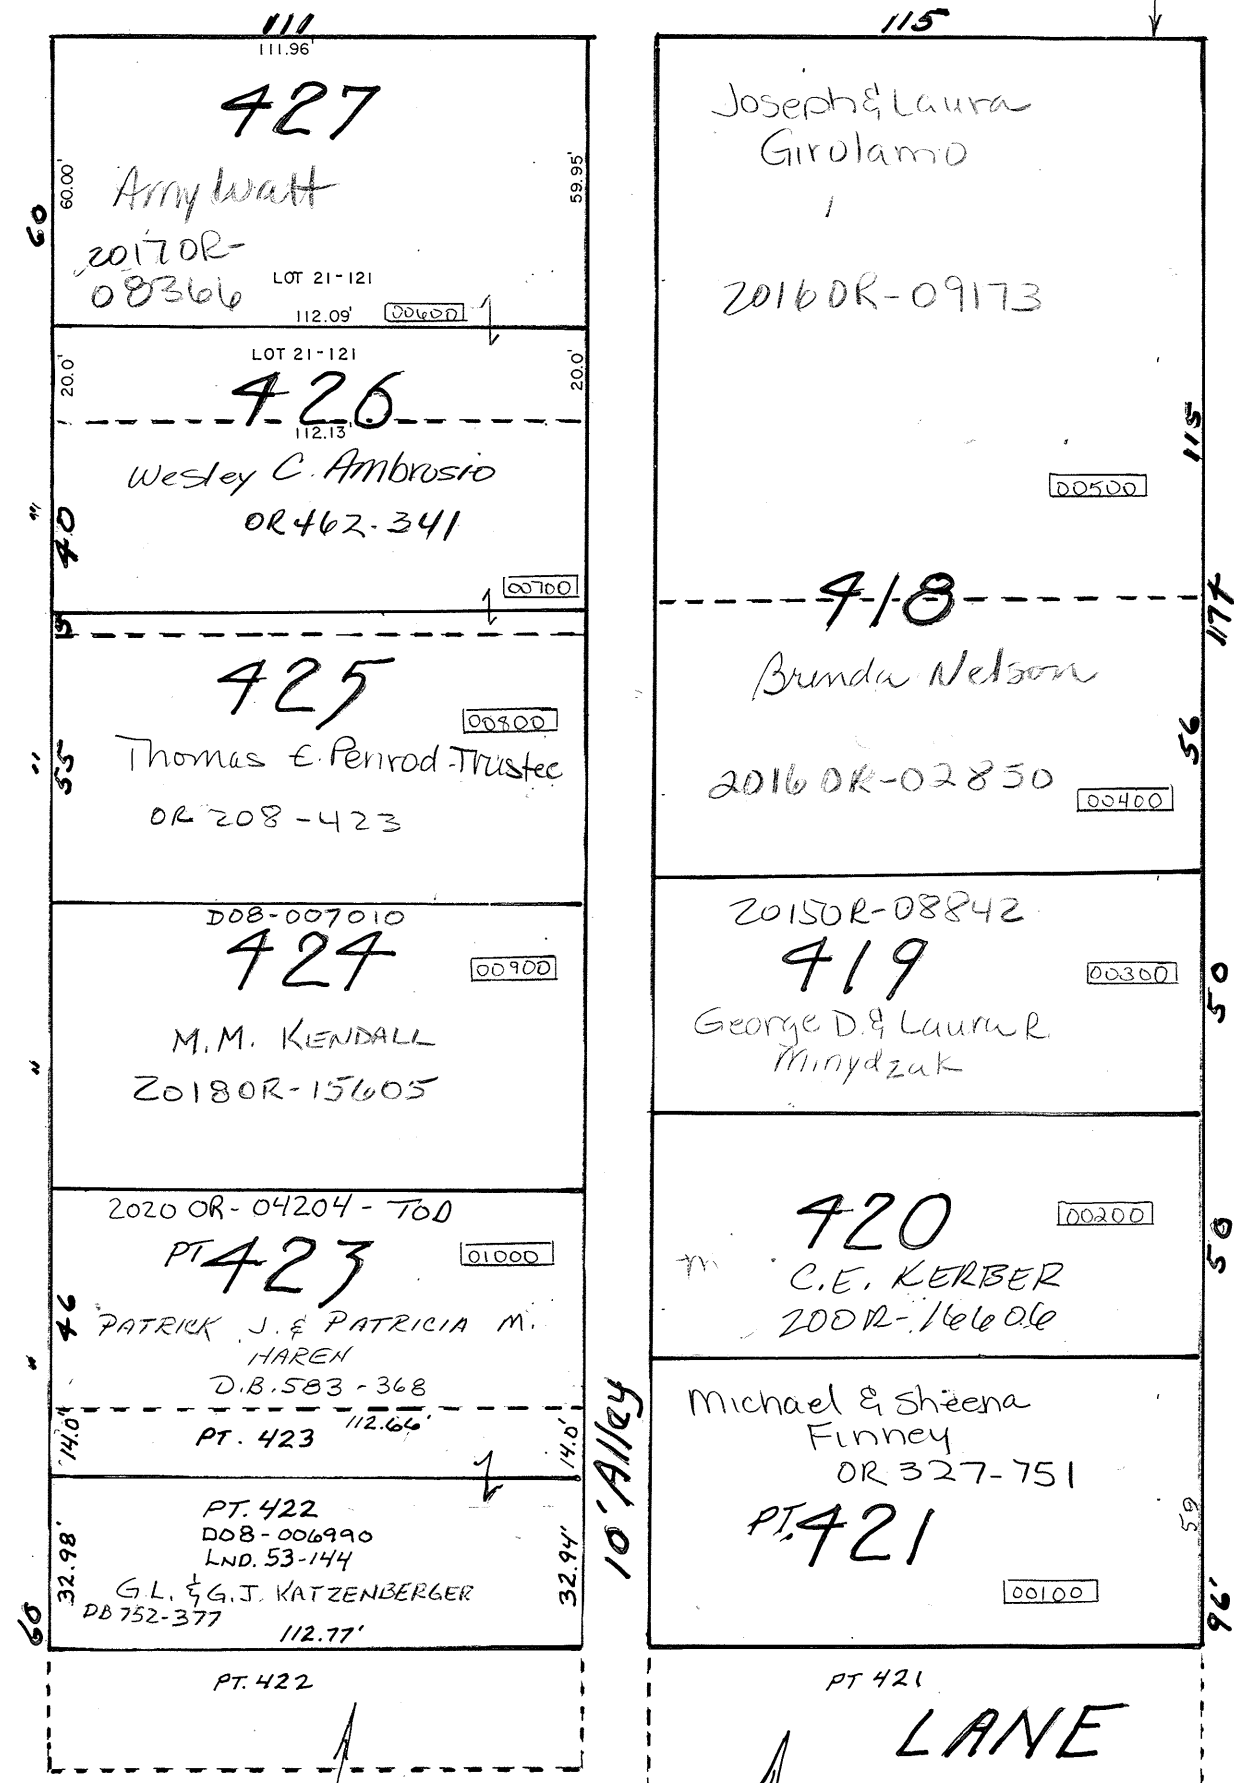 111
111.96'
427
60.00'
59.95'
60
Amy Watt
2017 OR-
08366
LOT 21-121
112.09'
00600
LOT 21-121
20.0'
20.0'
426
112.13'
Wesley C. Ambrosio
OR 462-341
"
40
00700
5
425
00800
Thomas E. Penrod-Trustee
"
55
OR 208-423
D08-007010
424
00900
M.M. KENDALL
"
2018OR-15605
2020 OR-04204-TOD
PT 423
01000
46
PATRICK J. & PATRICIA M.
HAREN
"
D.B. 583-368
112.66'
14.0'
PT. 423
14.0'
PT. 422
D08-006990
LND. 53-144
32.98'
32.94'
G.L. & G.J. KATZENBERGER
DB 752-377
60
112.77'
PT. 422
10' Alley
115
Joseph & Laura
Girolamo
2016 OR-09173
115
00500
418
174
Brenda Nelson
56
2016 OR-02850
00400
2015OR-08842
419
00300
50
George D. & Laura R.
Minydzak
420
00200
50
C.E. KERBER
200R-16606
Michael & Sheena
Finney
OR 327-751
PT. 421
59
00100
96'
PT 421
LANE